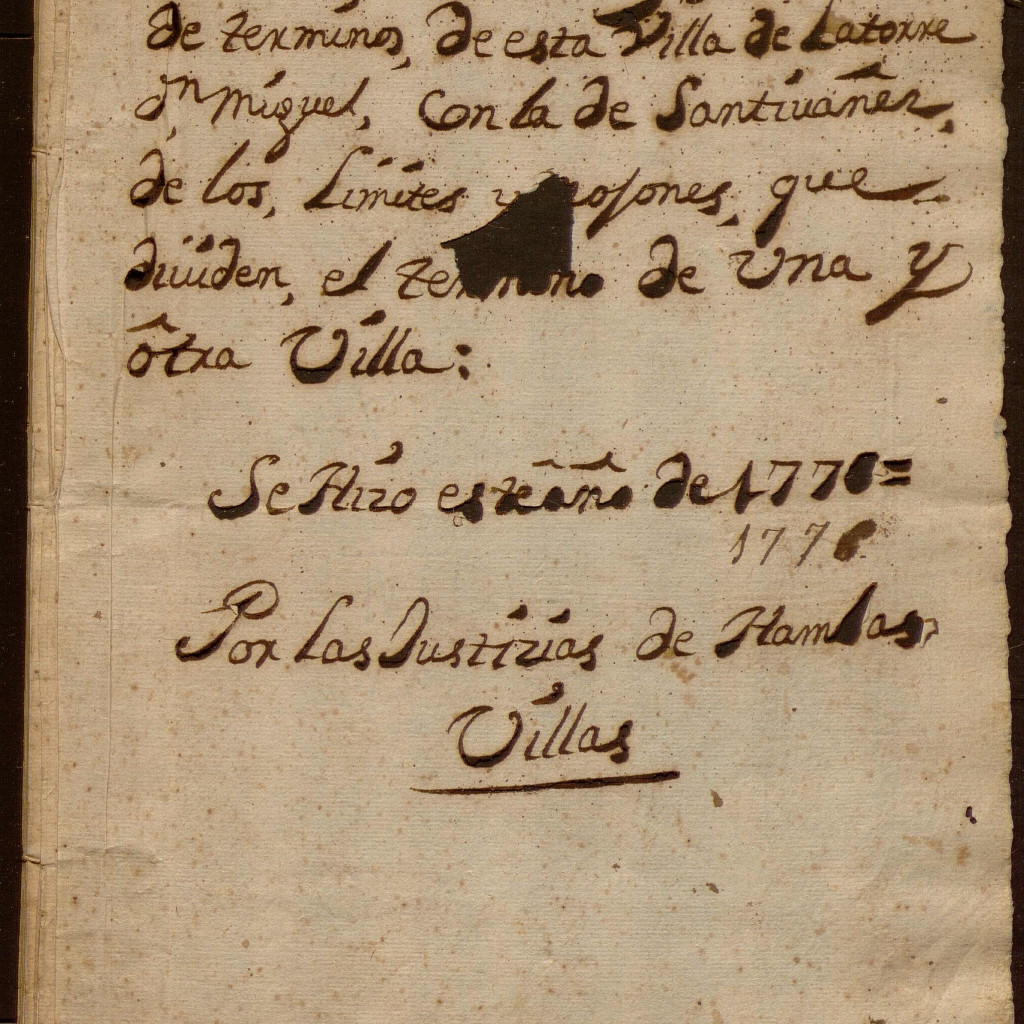 de terminos, de esta Villa de Latorre
dn Miguel, Con la de Santiuáñez,
de los, Limites y mojones, que
diuiden, el termino de Una y
ôtra Villa:
Se Hizo este año de 1776=
1776
Por las Justizias de Hambas
Villas